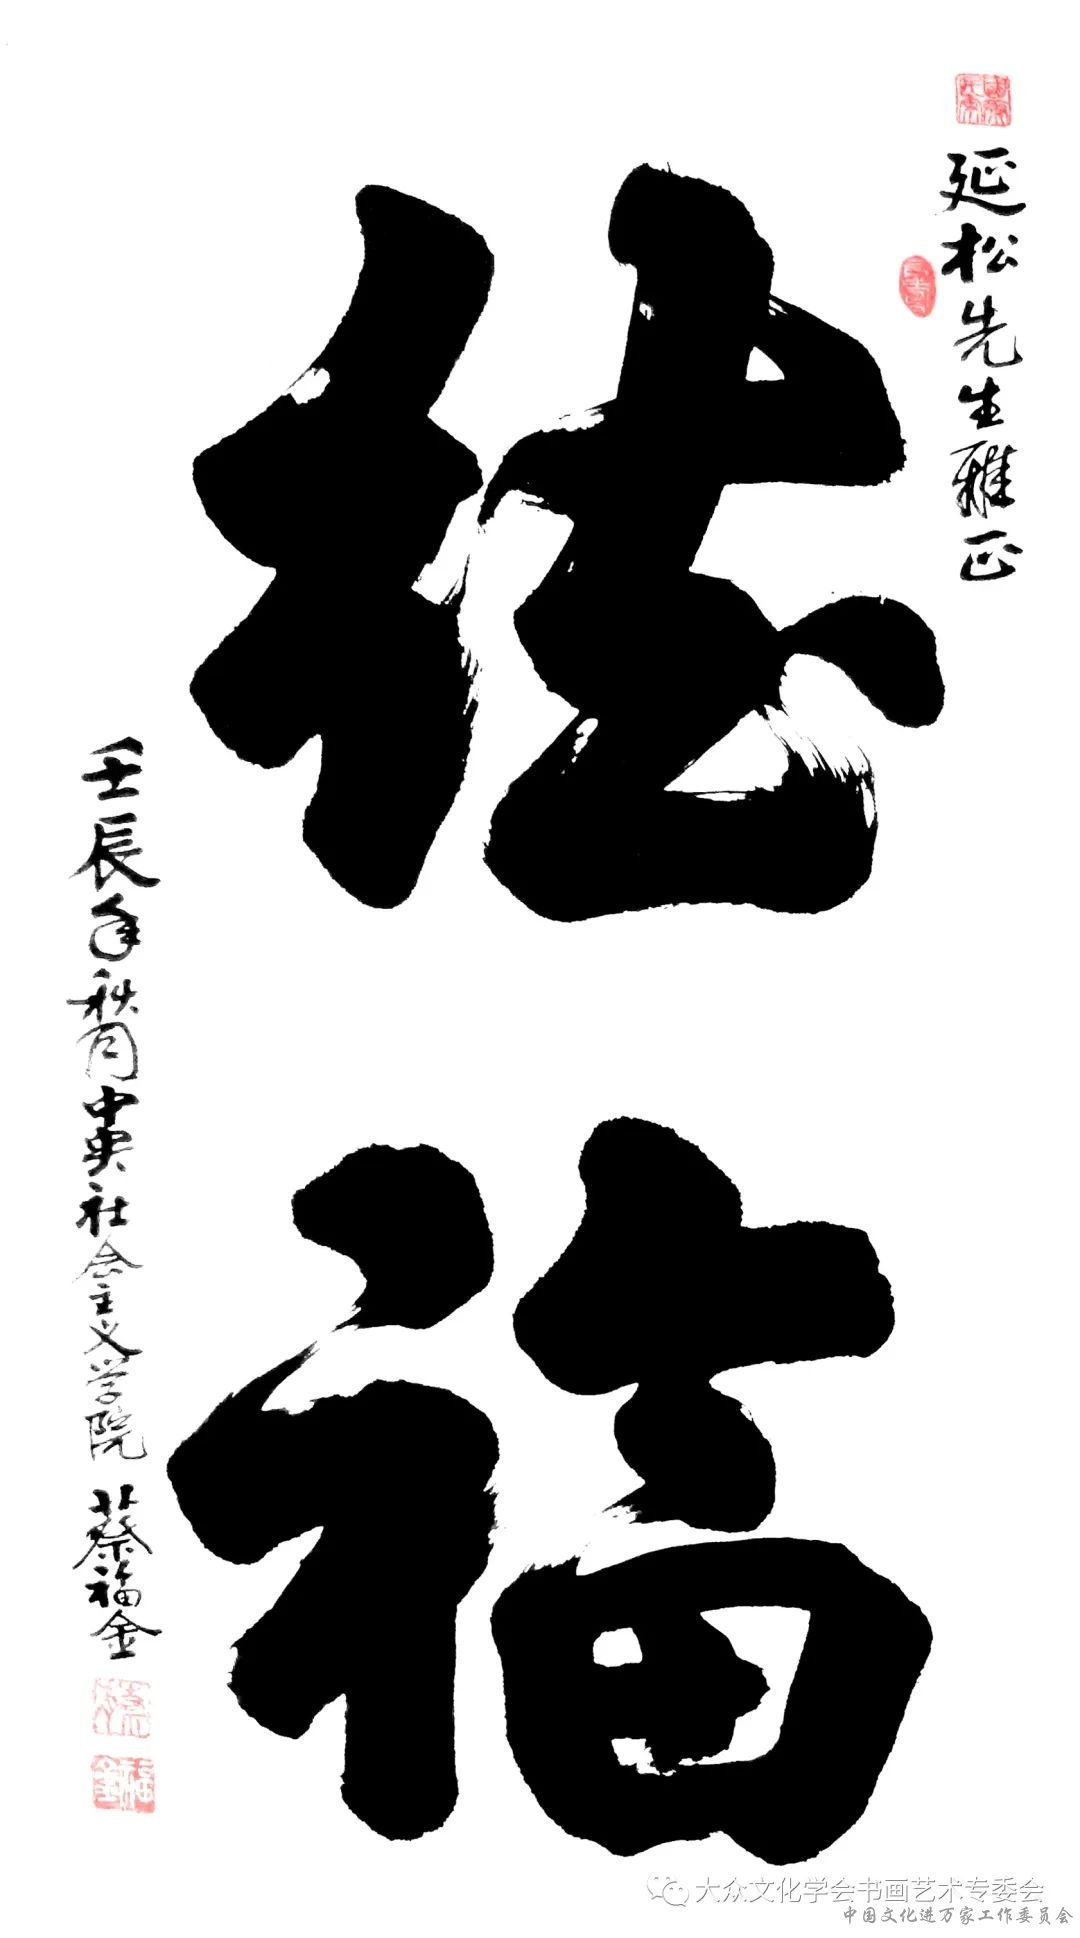 延松先生雅正
德福
壬辰年秋月中央社会主义学院 蔡福金
大众文化学会书画艺术专委会
中国文化进万家工作委员会